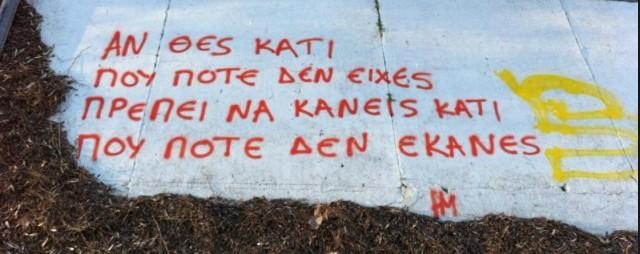 ΑΝ ΘΕς ΚΑΤΙ
ΠΟΥ ΠΟΤΕ ΔΕΝ ΕΙΧΕς
ΠΡΕΠΕΙ ΝΑ ΚΑΝΕΙς ΚΑΤΙ
ΠΟΥ ΠΟΤΕ ΔΕΝ ΕΚΑΝΕς
ΗΜ